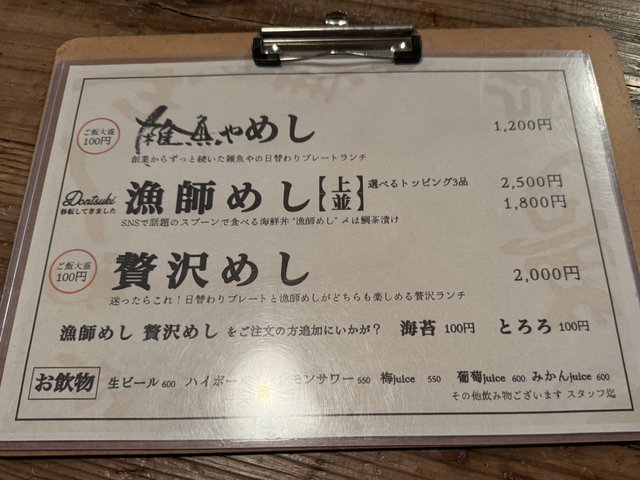 ご飯大盛
100円
雑魚やめし 1,200円
創業からずっと続いた雑魚やの日替わりプレートランチ
Dontsuki
移転してきました
漁師めし【上 選べるトッピング3品 2,500円
並】 1,800円
SNSで話題のスプーンで食べる海鮮丼"漁師めし"〆は鯛茶漬け
ご飯大盛
100円
贅沢めし 2,000円
迷ったらこれ！日替わりプレートと漁師めしがどちらも楽しめる贅沢ランチ
漁師めし 贅沢めし をご注文の方追加にいかが？ 海苔 100円 とろろ 100円
お飲物 生ビール 600 ハイボール モンサワー 550 梅juice 550 葡萄juice 600 みかんjuice 600
その他飲み物ございます スタッフ迄